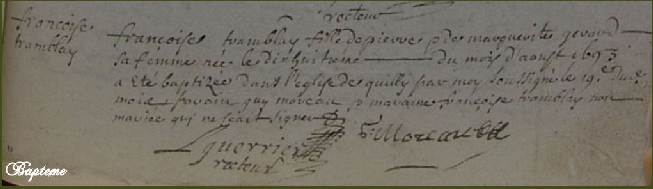 recteur
françoise
tramblay
françoises tramblay fille de pierre p de marguerites gerard
sa femme nee le dixhuitieme du mois d'aoust 1693
a eté baptizée dans l'eglise de quilly par moy soussigné le 19e dud
mois parain guy moreau p maraine françoise tramblay non
mariée qui ne scait signer
guerrier
G Moreau
recteur
Bapteme